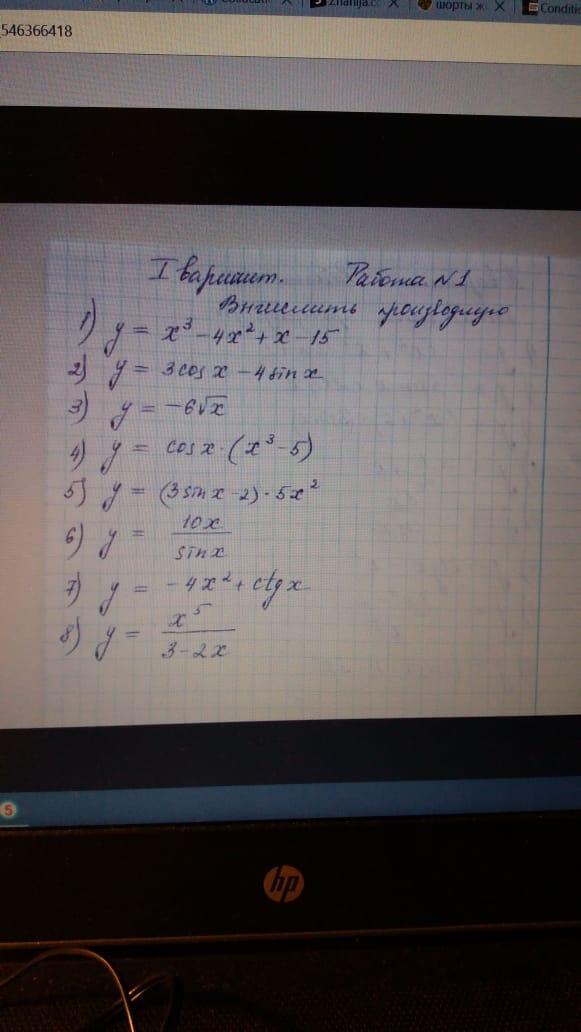 546366418
Collocatio
Znanija.co
шорты ж
Conditio
I вариант. Работа N1
Вычислить производную
1) y = x³ - 4x² + x - 15
2) y = 3cos x - 4sin x
3) y = -6√x
4) y = cos x · (x³ - 5)
5) y = (3sin x - 2) · 5x²
6) y = 10x / sin x
7) y = -4x² + ctg x
8) y = x⁵ / 3 - 2x
5
hp